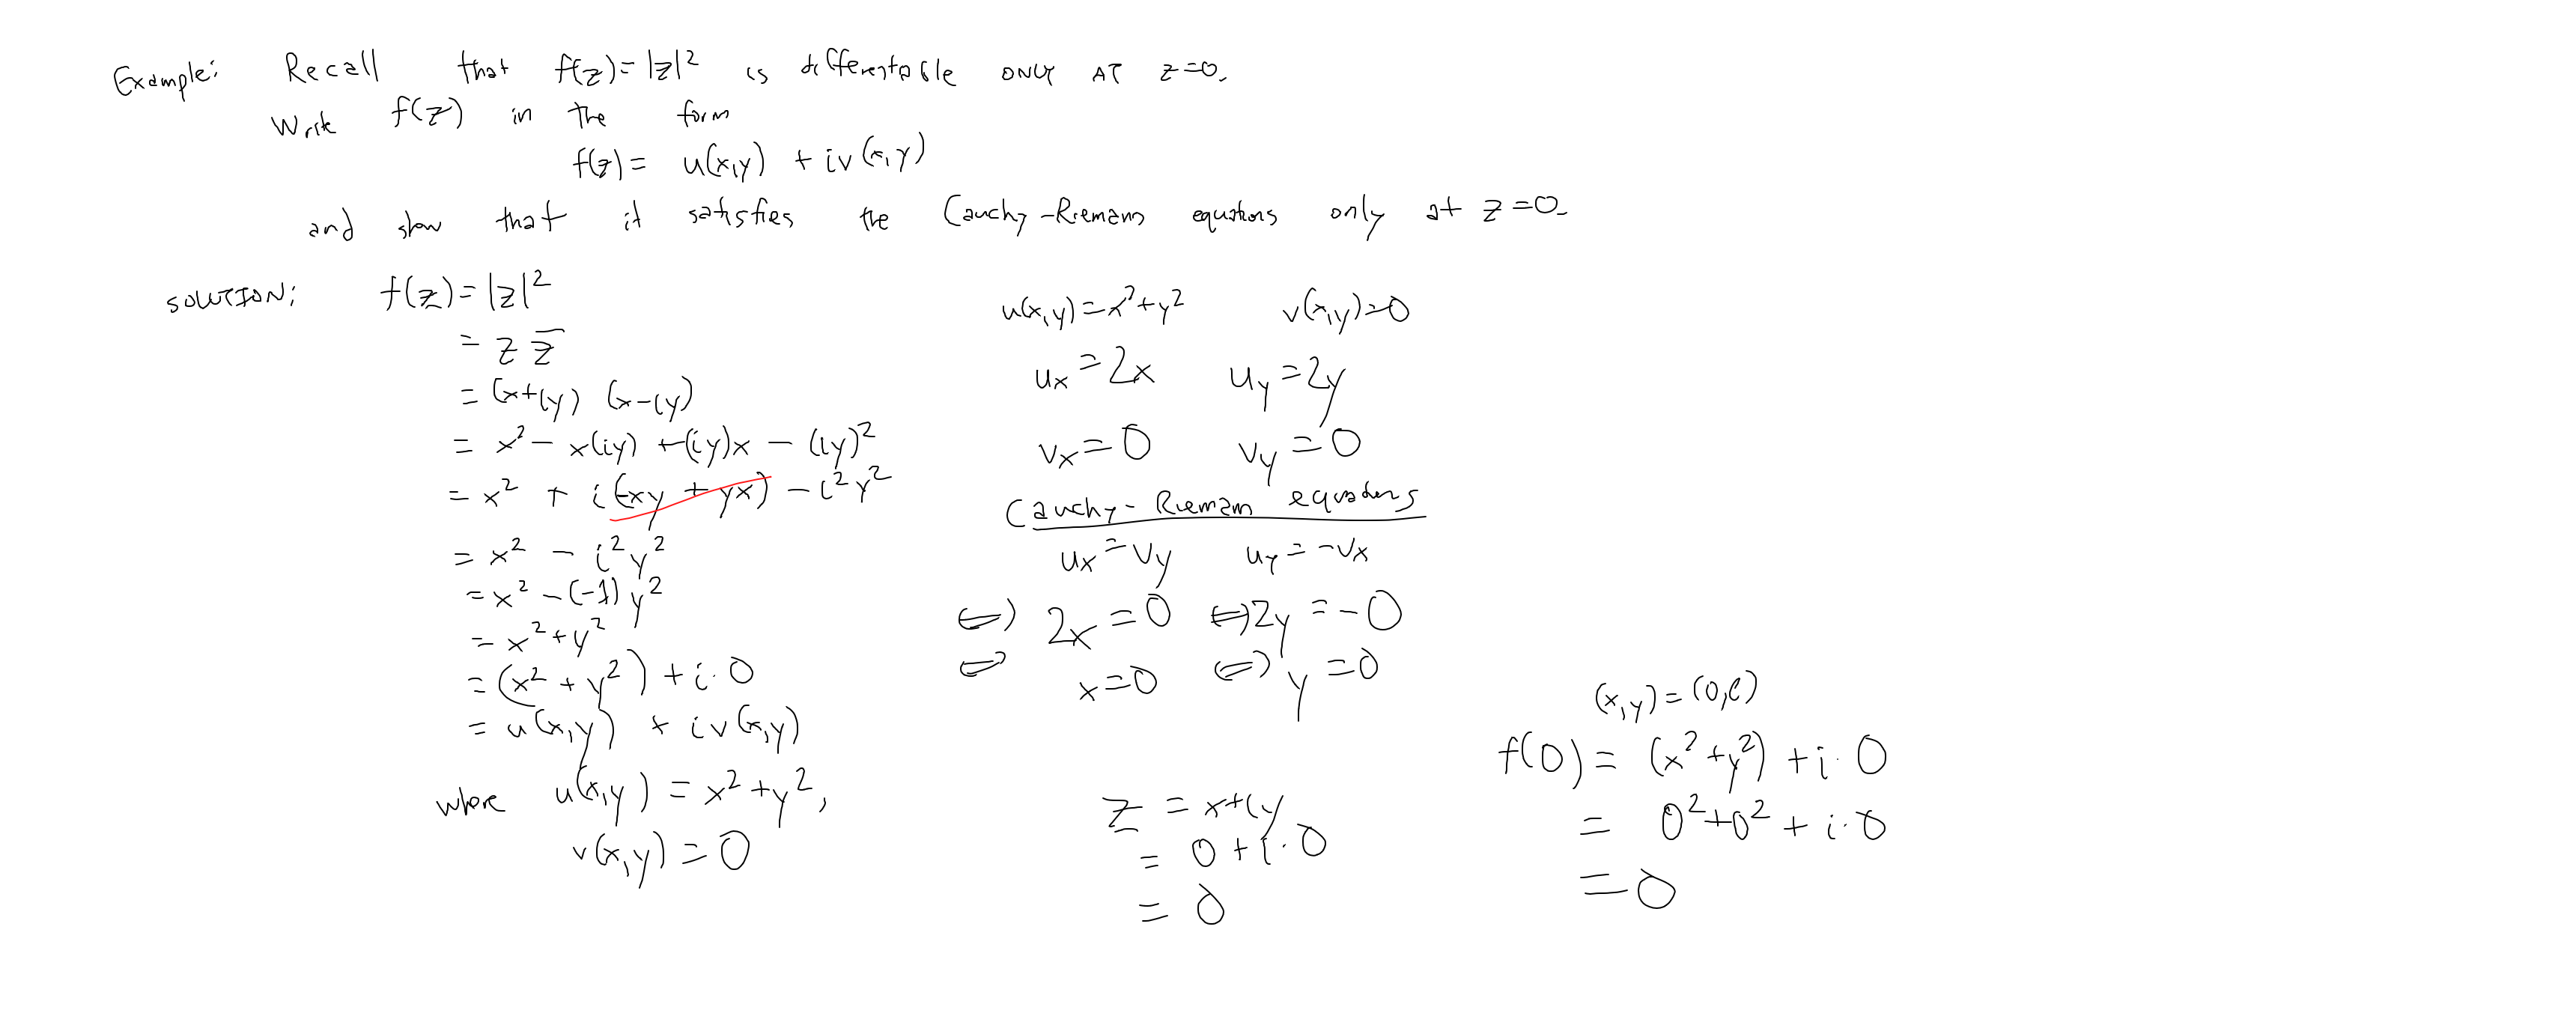 Example: Recall that f(z)=|z|² is differentiable ONLY AT z=0.
Write f(z) in the form
f(z)= u(x,y) + iv(x,y)
and show that it satisfies the Cauchy-Riemann equations only at z=0.
SOLUTION: f(z)=|z|²
= z z̅
= (x+iy) (x-iy)
= x² - x(iy) +(iy)x - (iy)²
= x² + i(-xy + yx) - i²y²
= x² - i²y²
= x² - (-1) y²
= x²+y²
= (x² + y²) + i·0
= u(x,y) + iv(x,y)
where u(x,y) = x²+y²,
v(x,y) = 0
u(x,y)=x²+y² v(x,y)=0
uₓ=2x u_y=2y
vₓ=0 v_y=0
Cauchy-Riemann equations
uₓ=v_y u_y=-vₓ
⇔ 2x=0 ⇔ 2y=-0
⇔ x=0 ⇔ y=0
z = x+iy
= 0+i·0
= 0
(x,y)=(0,0)
f(0)= (x²+y²) +i·0
= 0²+0² + i·0
=0